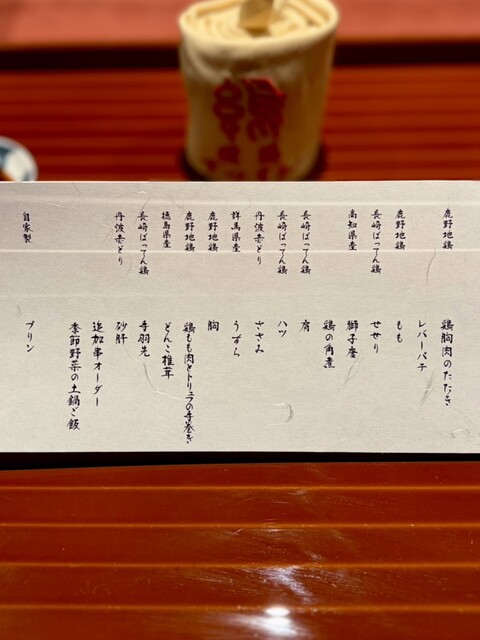 鹿野地鶏 鶏胸肉のたたき
レバーパテ
鹿野地鶏 もも
長崎ばってん鶏 せせり
高知県産 獅子唐
鶏の角煮
長崎ばってん鶏 肩
長崎ばってん鶏 ハツ
丹波赤どり ささみ
群馬県産 うずら
鹿野地鶏 胸
鹿野地鶏 鶏もも肉とトリュフの手巻き
徳島県産 どんこ椎茸
長崎ばってん鶏 手羽先
丹波赤どり 砂肝
追加串オーダー
季節野菜の土鍋ご飯
自家製 プリン